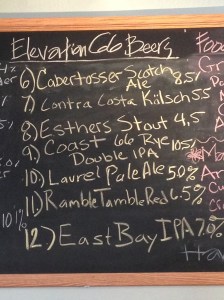 Elevation 66 Beers
6) Cabertosser Scotch
Ale 8.5%
7) Contra Costa Kölsch 5.5
8) Esthers Stout 4.5
9.) Coast 66 Rye 10.5%
Double IPA
10.) Laurel Pale Ale 5.0%
11) Ramble Tamble Red 6.5%
12.) East Bay IPA 7.0%
10.1%